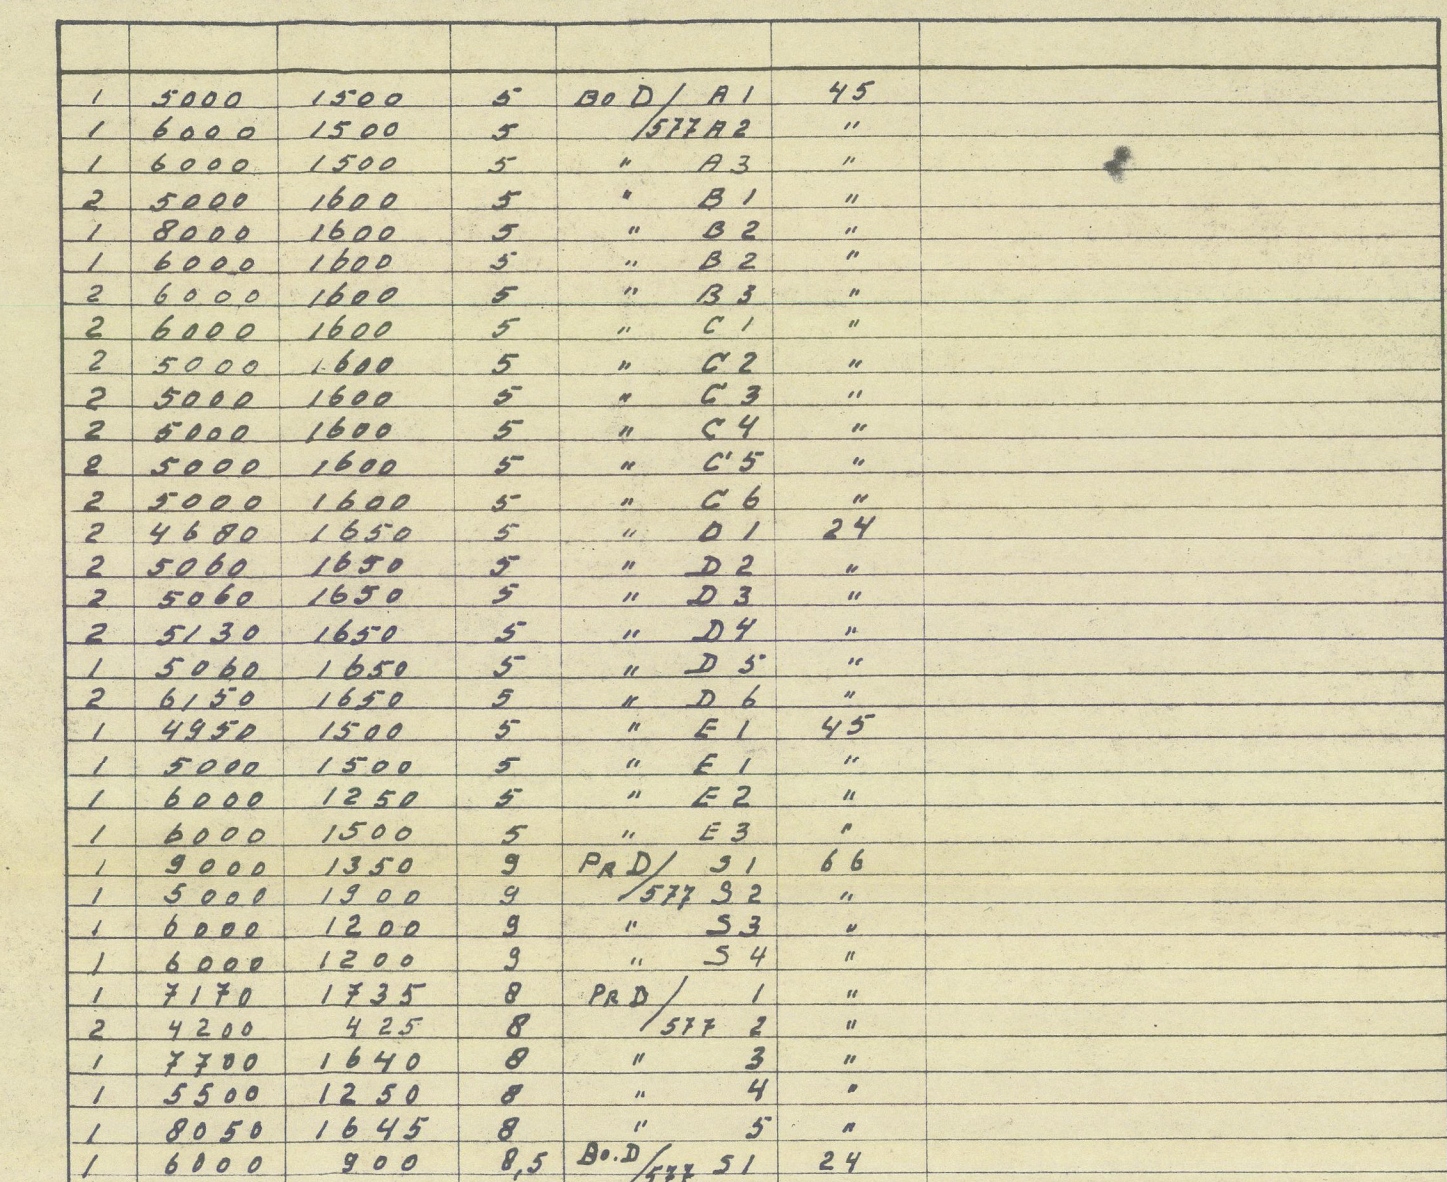 1 5000 1500 5 Bo D/ A1 45
1 6000 1500 5 /577 A2 "
1 6000 1500 5 " A3 "
2 5000 1600 5 " B1 "
1 8000 1600 5 " B2 "
1 6000 1600 5 " B2 "
2 6000 1600 5 " B3 "
2 6000 1600 5 " C1 "
2 5000 1600 5 " C2 "
2 5000 1600 5 " C3 "
2 5000 1600 5 " C4 "
2 5000 1600 5 " C5 "
2 5000 1600 5 " C6 "
2 4680 1650 5 " D1 24
2 5060 1650 5 " D2 "
2 5060 1650 5 " D3 "
2 5130 1650 5 " D4 "
1 5060 1650 5 " D5 "
2 6150 1650 5 " D6 "
1 4950 1500 5 " E1 45
1 5000 1500 5 " E1 "
1 6000 1250 5 " E2 "
1 6000 1500 5 " E3 "
1 9000 1350 9 PR D/ S1 66
1 5000 1900 9 /577 S2 "
1 6000 1200 9 " S3 "
1 6000 1200 9 " S4 "
1 7170 1735 8 PR D/ 1 "
2 4200 425 8 /577 2 "
1 7700 1640 8 " 3 "
1 5500 1250 8 " 4 "
1 8050 1645 8 " 5 "
1 6000 900 8,5 Bo.D/577 S1 24